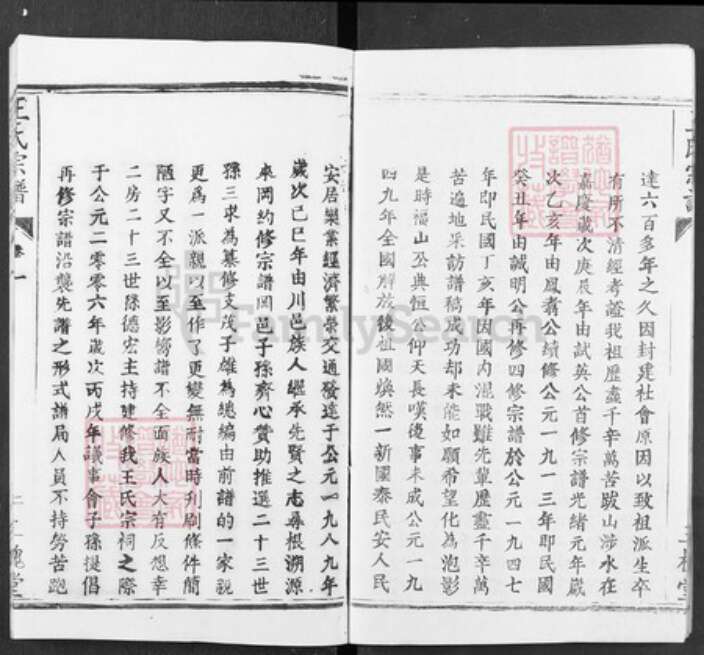 達六百多年之久因封建社會原因以致祖派生卒
有所不清經考證我祖歷盡千辛萬苦跋山涉水在
嘉慶歲次庚辰年由試英公首修宗譜光緒元年歲
次乙亥年由鳳翥公續修公元一九一三年即民國
癸丑年由誠明公再修四修宗譜於公元一九四七
年即民國丁亥年因國內混戰雖先輩歷盡千辛萬
苦遍地采訪譜稿成功却未能如願希望化為泡影
是時福山公典恒公仰天長嘆後事未成公元一九
四九年全國解放後祖國煥然一新國泰民安人民
安居樂業經濟繁榮交通發達于公元一九八九年
歲次己巳年由川邑族人繼承先賢之志尋根溯源
來岡約修宗譜岡邑子孫齊心贊助推選二十三世
孫三求為纂修支茂子雄為總編由前譜的一家親
更為一派親以至作了更變無耐當時刋刷條件簡
陋字又不全以至影嚮譜不全面族人大有反想幸
二房二十三世孫德宏主持建修我王氏宗祠之際
于公元二零零六年歲次丙戌年議事會子孫提倡
再修宗譜沿襲先譜之形式譜局人員不持勞苦跑
王氏宗譜
卷一
三槐堂
FamilySearch